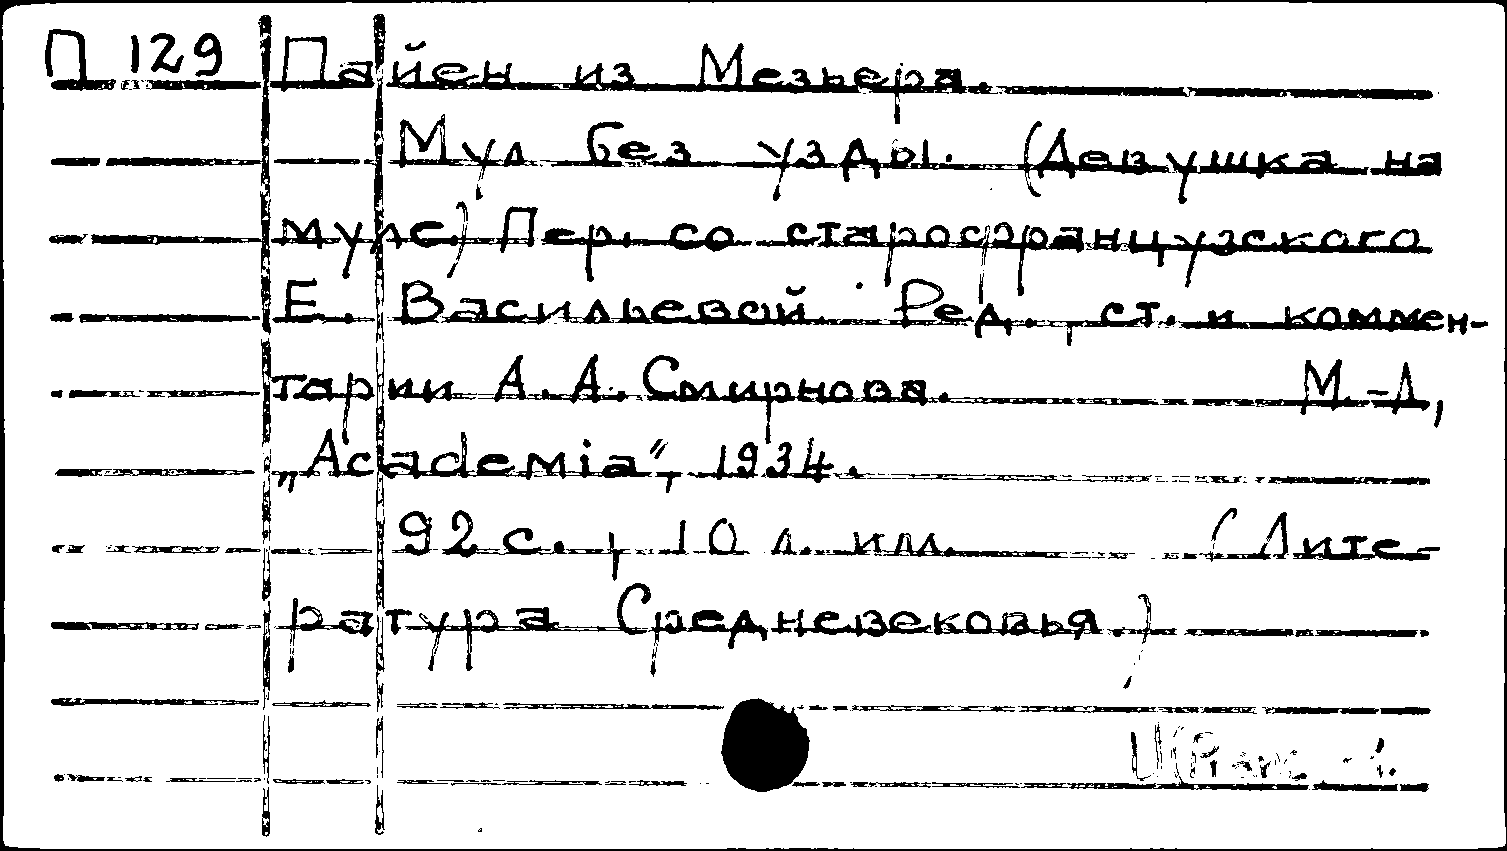 П 129 Пайен из Мезьера.
Мул без узды. (Девушка на
муле.) Пер. со старофранцузского
Е. Васильевой. Ред., ст. и коммен-
тарии А. А. Смирнова. М.-Л,
„Academia“, 1934.
92 с., 10 л. илл. (Лите-
ратура Средневековья.)